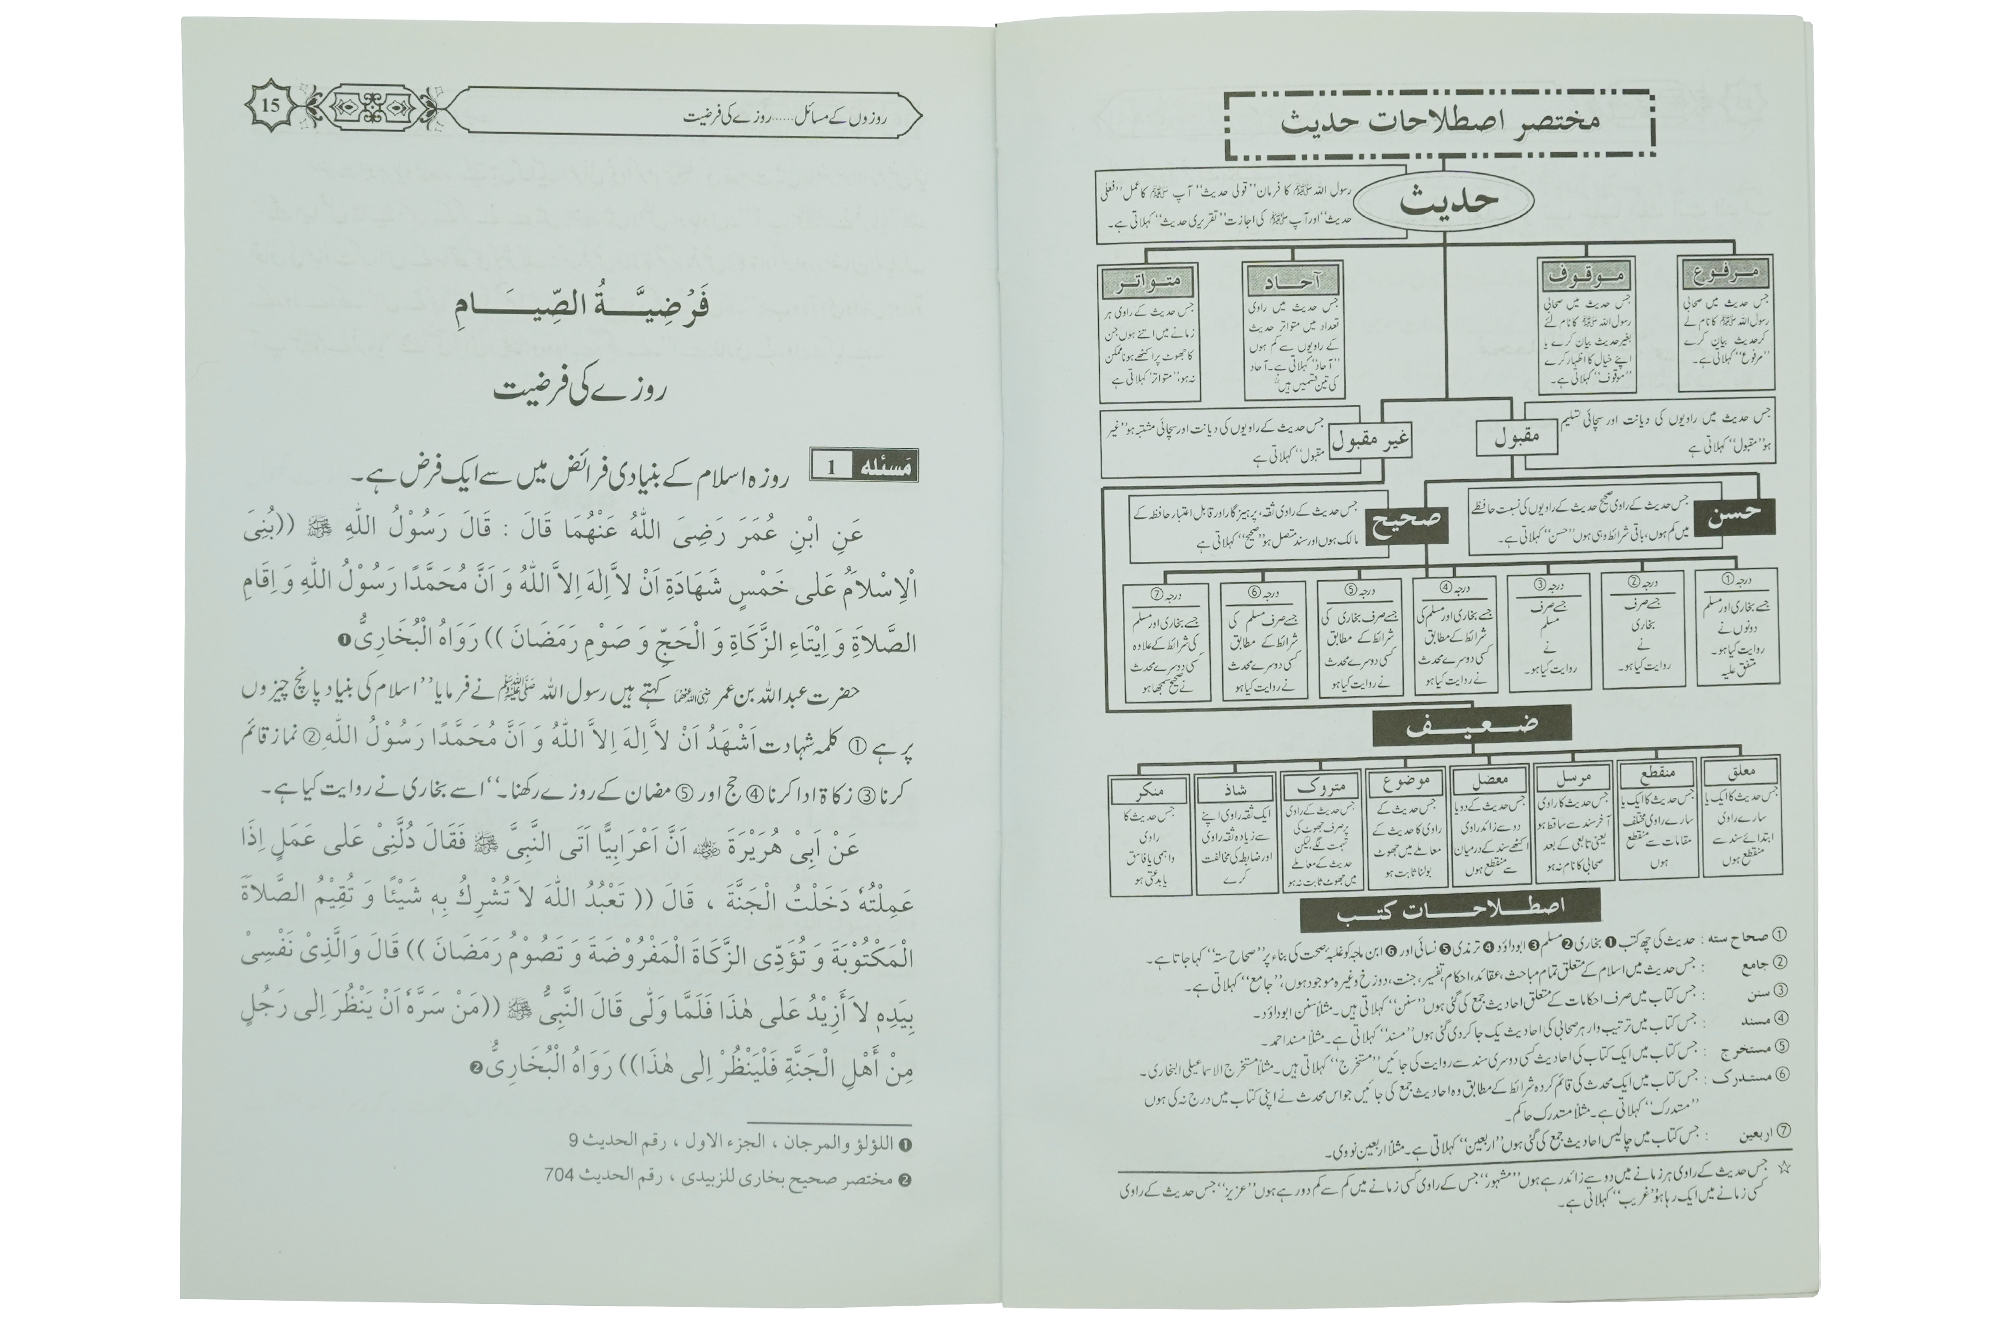 مختصر اصطلاحات حدیث
حدیث
رسول اللہ ﷺ کا فرمان ’’قولی حدیث‘‘ آپ ﷺ کا عمل ’’فعلی
حدیث‘‘ اور آپ ﷺ کی اجازت ’’تقریری حدیث‘‘ کہلاتی ہے۔
مرفوع
جس حدیث میں صحابی
رسول اللہ ﷺ کا نام لے
کر حدیث بیان کرے
’’مرفوع‘‘ کہلاتی ہے۔
موقوف
جس حدیث میں صحابی
رسول اللہ ﷺ کا نام لئے
بغیر حدیث بیان کرے یا
اپنے خیال کا اظہار کرے
’’موقوف‘‘ کہلاتی ہے۔
آحاد
جس حدیث میں راوی
تعداد میں متواتر حدیث
کے راویوں سے کم ہوں
’’آحاد‘‘ کہلاتی ہے۔ آحاد
کی تین قسمیں ہیں
متواتر
جس حدیث کے راوی ہر
زمانے میں اتنے ہوں جن
کا جھوٹ پر اکٹھے ہونا ممکن
نہ ہو، ’’متواتر‘‘ کہلاتی ہے
مقبول
جس حدیث میں راویوں کی دیانت اور سچائی تسلیم
ہو ’’مقبول‘‘ کہلاتی ہے
غیر مقبول
جس حدیث کے راویوں کی دیانت اور سچائی مشتبہ ہو ’’غیر
مقبول‘‘ کہلاتی ہے
حسن
جس حدیث کے راوی صحیح حدیث کے راویوں کی نسبت حافظے
میں کم ہوں، باقی شرائط وہی ہوں ’’حسن‘‘ کہلاتی ہے۔
صحیح
جس حدیث کے راوی ثقہ، پرہیز گار اور قابل اعتبار حافظہ کے
مالک ہوں اور سند متصل ہو ’’صحیح‘‘ کہلاتی ہے
درجہ ①
جسے بخاری اور مسلم
دونوں نے
روایت کیا ہو۔
متفق علیہ
درجہ ②
جسے صرف
بخاری
نے
روایت کیا ہو۔
درجہ ③
جسے صرف
مسلم
نے
روایت کیا ہو۔
درجہ ④
جسے بخاری اور مسلم کی
شرائط کے مطابق
کسی دوسرے محدث
نے روایت کیا ہو
درجہ ⑤
جسے صرف بخاری کی
شرائط کے مطابق
کسی دوسرے محدث
نے روایت کیا ہو
درجہ ⑥
جسے صرف مسلم کی
شرائط کے مطابق
کسی دوسرے محدث
نے روایت کیا ہو
درجہ ⑦
جسے بخاری اور مسلم
کی شرائط کے علاوہ
کسی دوسرے محدث
نے صحیح سمجھا ہو
ضعیف
معلق
جس حدیث کا ایک یا
سارے راوی
ابتدائے سند سے
منقطع ہوں
منقطع
جس حدیث کا ایک یا
سارے راوی مختلف
مقامات سے منقطع
ہوں
مرسل
جس حدیث کا راوی
آخر سند سے ساقط ہو
یعنی تابعی کے بعد
صحابی کا نام نہ ہو
معضل
جس حدیث کے دو یا
دو سے زائد راوی
اکٹھے سند کے درمیان
سے منقطع ہوں
موضوع
جس حدیث کے
راوی کا حدیث کے
معاملے میں جھوٹ
بولنا ثابت ہو
متروک
جس حدیث کے راوی
پر صرف جھوٹ کی
تہمت لگے لیکن
حدیث کے معاملے
میں جھوٹ ثابت نہ ہو
شاذ
ایک ثقہ راوی اپنے
سے زیادہ ثقہ راوی
اور ضابطہ کی مخالفت
کرے
منکر
جس حدیث کا
راوی
واہمی یا فاسق
یا بدعتی ہو
اصطلاحات کتب
① صحاح ستہ : حدیث کی چھ کتب ❶ بخاری ❷ مسلم ❸ ابو داؤد ❹ ترمذی ❺ نسائی اور ❻ ابن ماجہ کو غلبۂ صحت کی بناء پر ’’صحاح ستہ‘‘ کہا جاتا ہے۔
② جامع : جس حدیث میں اسلام کے متعلق تمام مباحث، عقائد، احکام، تفسیر، جنت، دوزخ وغیرہ موجود ہوں، ’’جامع‘‘ کہلاتی ہے۔
③ سنن : جس کتاب میں صرف احکامات کے متعلق احادیث جمع کی گئی ہوں ’’سنن‘‘ کہلاتی ہیں۔ مثلاً سنن ابو داؤد۔
④ مسند : جس کتاب میں ترتیب وار ہر صحابی کی احادیث یک جا کر دی گئی ہوں ’’مسند‘‘ کہلاتی ہے۔ مثلاً مسند احمد۔
⑤ مستخرج : جس کتاب میں ایک کتاب کی احادیث کسی دوسری سند سے روایت کی جائیں ’’مستخرج‘‘ کہلاتی ہیں۔ مثلاً مستخرج الاسماعیلی البخاری۔
⑥ مستدرک : جس کتاب میں ایک محدث کی قائم کردہ شرائط کے مطابق وہ احادیث جمع کی جائیں جو اس محدث نے اپنی کتاب میں درج نہ کی ہوں
’’مستدرک‘‘ کہلاتی ہے۔ مثلاً مستدرک حاکم۔
⑦ اربعین : جس کتاب میں چالیس احادیث جمع کی گئی ہوں ’’اربعین‘‘ کہلاتی ہے۔ مثلاً اربعین نووی۔
☆ جس حدیث کے راوی ہر زمانے میں دو سے زائد رہے ہوں ’’مشہور‘‘ جس کے راوی کسی زمانے میں کم سے کم دو رہے ہوں ’’عزیز‘‘ جس حدیث کے راوی
کسی زمانے میں ایک رہا ہو ’’غریب‘‘ کہلاتی ہے۔
روزوں کے مسائل ...... روزے کی فرضیت
15
فَرْضِيَّةُ الصِّيَامِ
روزے کی فرضیت
مَسئله 1 روزہ اسلام کے بنیادی فرائض میں سے ایک فرض ہے۔
عَنِ ابْنِ عُمَرَ رَضِىَ اللّٰهُ عَنْهُمَا قَالَ : قَالَ رَسُوْلُ اللّٰهِ ﷺ ((بُنِىَ
الْاِسْلاَمُ عَلٰى خَمْسٍ شَهَادَةِ اَنْ لاَّ اِلٰهَ اِلاَّ اللّٰهُ وَ اَنَّ مُحَمَّدًا رَسُوْلُ اللّٰهِ وَ اِقَامِ
الصَّلاَةِ وَ اِيْتَاءِ الزَّكَاةِ وَ الْحَجِّ وَ صَوْمِ رَمَضَانَ )) رَوَاهُ الْبُخَارِىُّ ❶
حضرت عبداللہ بن عمر رضی اللہ عنہما کہتے ہیں رسول اللہ ﷺ نے فرمایا ’’اسلام کی بنیاد پانچ چیزوں
پر ہے ① کلمہ شہادت اَشْهَدُ اَنْ لاَّ اِلٰهَ اِلاَّ اللّٰهُ وَ اَنَّ مُحَمَّدًا رَسُوْلُ اللّٰهِ ② نماز قائم
کرنا ③ زکاۃ ادا کرنا ④ حج اور ⑤ مضان کے روزے رکھنا۔‘‘ اسے بخاری نے روایت کیا ہے۔
عَنْ اَبِىْ هُرَيْرَةَ ﷺ اَنَّ اَعْرَابِيًّا اَتَى النَّبِىَّ ﷺ فَقَالَ دُلَّنِىْ عَلٰى عَمَلٍ اِذَا
عَمِلْتُهُ دَخَلْتُ الْجَنَّةَ ، قَالَ (( تَعْبُدُ اللّٰهَ لاَ تُشْرِكُ بِهٖ شَيْئًا وَ تُقِيْمُ الصَّلاَةَ
الْمَكْتُوْبَةَ وَ تُؤَدِّى الزَّكَاةَ الْمَفْرُوْضَةَ وَ تَصُوْمُ رَمَضَانَ )) قَالَ وَالَّذِىْ نَفْسِىْ
بِيَدِهٖ لاَ أَزِيْدُ عَلٰى هٰذَا فَلَمَّا وَلّٰى قَالَ النَّبِىُّ ﷺ ((مَنْ سَرَّهٗ اَنْ يَنْظُرَ اِلٰى رَجُلٍ
مِنْ أَهْلِ الْجَنَّةِ فَلْيَنْظُرْ اِلٰى هٰذَا)) رَوَاهُ الْبُخَارِىُّ ❷
❶ اللؤلؤ والمرجان ، الجزء الاول ، رقم الحديث 9
❷ مختصر صحيح بخارى للزبيدى ، رقم الحديث 704